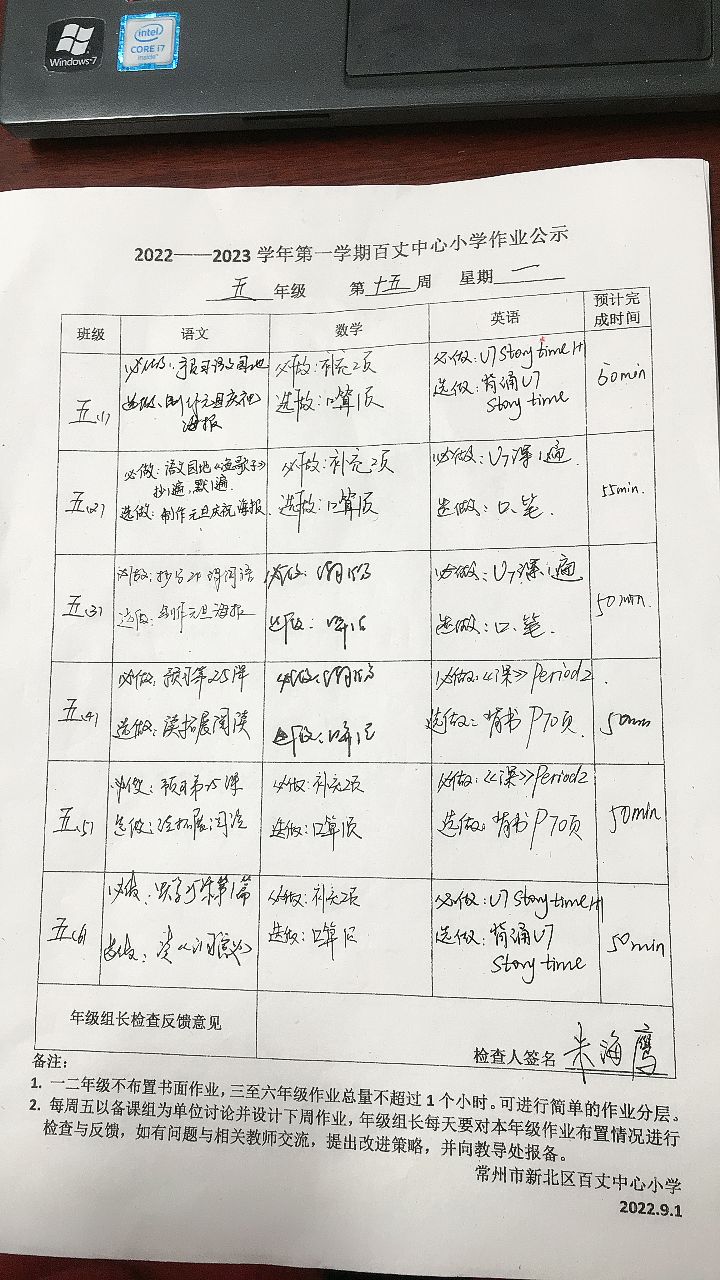 Windows 7
intel
CORE i7
inside
2022——2023 学年第一学期百丈中心小学作业公示
五 年级 第 十五 周 星期 一
班级 语文 数学 英语 预计完成时间
五(1)
必做:预习语文园地
选做:制作元旦庆祝
海报
必做:补充2页
选做:口算1页
必做:U7 Story time 
选做:背诵U7
Story time
60min
五(2)
必做:语文园地《渔歌子》
抄1遍,默1遍.
选做:制作元旦庆祝海报
必做:补充2页
选做:口算1页
必做:U7课1遍
选做:口、笔.
55min.
五(3)
必做:抄写
选做:制作元旦海报
必做:
选做:口算1页
必做:U7课1遍
选做:口、笔.
50min.
五(4)
必做:预习第25课
选做:读拓展阅读
必做:
选做:口算1页
必做:《课》Period2.
选做:背书P70页.
50min
五(5)
必做:预习第25课
选做:读拓展阅读
必做:补充2页
选做:口算1页
必做:《课》Period2
选做:背书P70页
50min
五(6)
必做:
选做:读
必做:补充2页
选做:口算1页
必做:U7 Story time
选做:背诵U7
Story time
50min
年级组长检查反馈意见
检查人签名 朱海鹰
备注:
1. 一二年级不布置书面作业,三至六年级作业总量不超过 1 个小时。可进行简单的作业分层。
2. 每周五以备课组为单位讨论并设计下周作业,年级组长每天要对本年级作业布置情况进行
检查与反馈,如有问题与相关教师交流,提出改进策略,并向教导处报备。
常州市新北区百丈中心小学
2022.9.1